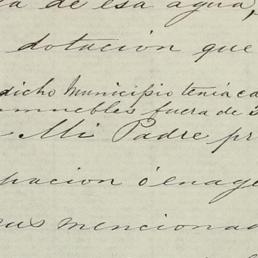 a de esa agua,
dotacion que
dicho Municipio tenia ca
inmuebles fuera de
Mi Padre pr
pacion ó enage
mencionad